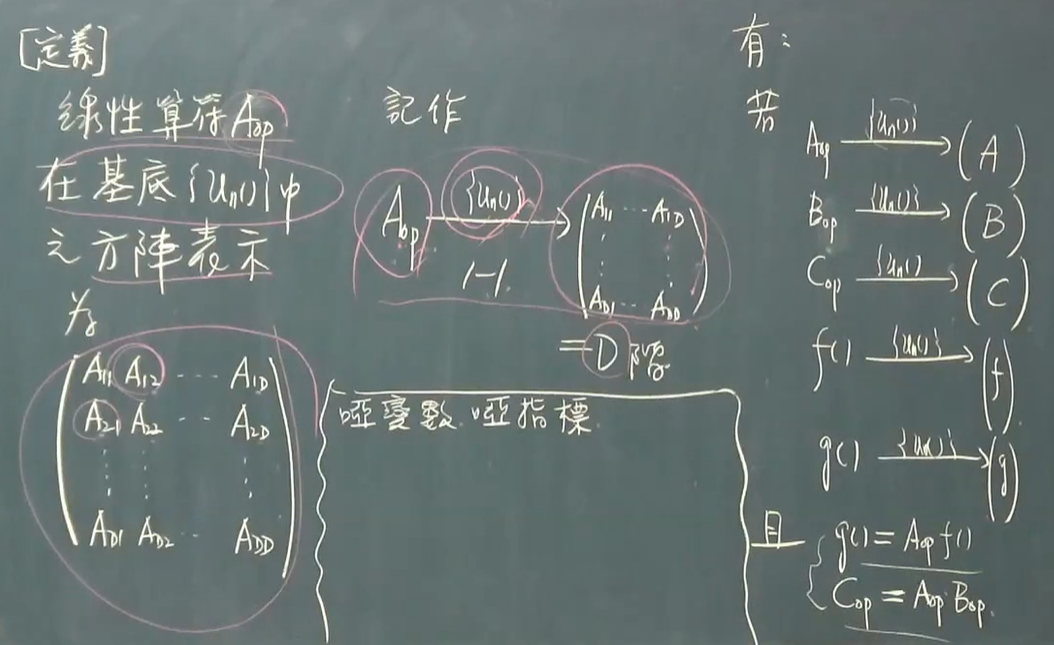 [定義]
線性算符 Aop
在基底{Un()}中
之方陣表示
為
A11 A12 ··· A1D
A21 A22 ··· A2D
⋮ ⋮ ⋮
AD1 AD2 ·· ADD
記作
Aop {Un()} → (A11 ··· A1D
⋮ ⋮
AD1 ··· ADD)
1-1
=D階
啞變數.啞指標
有:
若
Aop {Un()} → (A)
Bop {Un()} → (B)
Cop {Un()} → (C)
f() {Un()} → (f)
g() {Un()} → (g)
且 g()=Aop f()
Cop = Aop Bop.